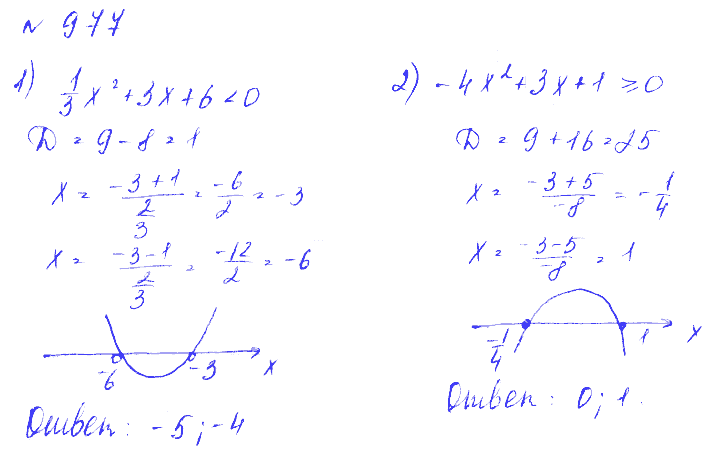 № 977
1) 1/3 x² + 3x + 6 < 0
D = 9 - 8 = 1
x = (-3+1)/(2/3) = -6/2 = -3
x = (-3-1)/(2/3) = -12/2 = -6
-6 -3 x
Ответ: -5; -4
2) -4x² + 3x + 1 ≥ 0
D = 9 + 16 = 25
x = (-3+5)/-8 = -1/4
x = (-3-5)/-8 = 1
-1/4 1 x
Ответ: 0; 1.